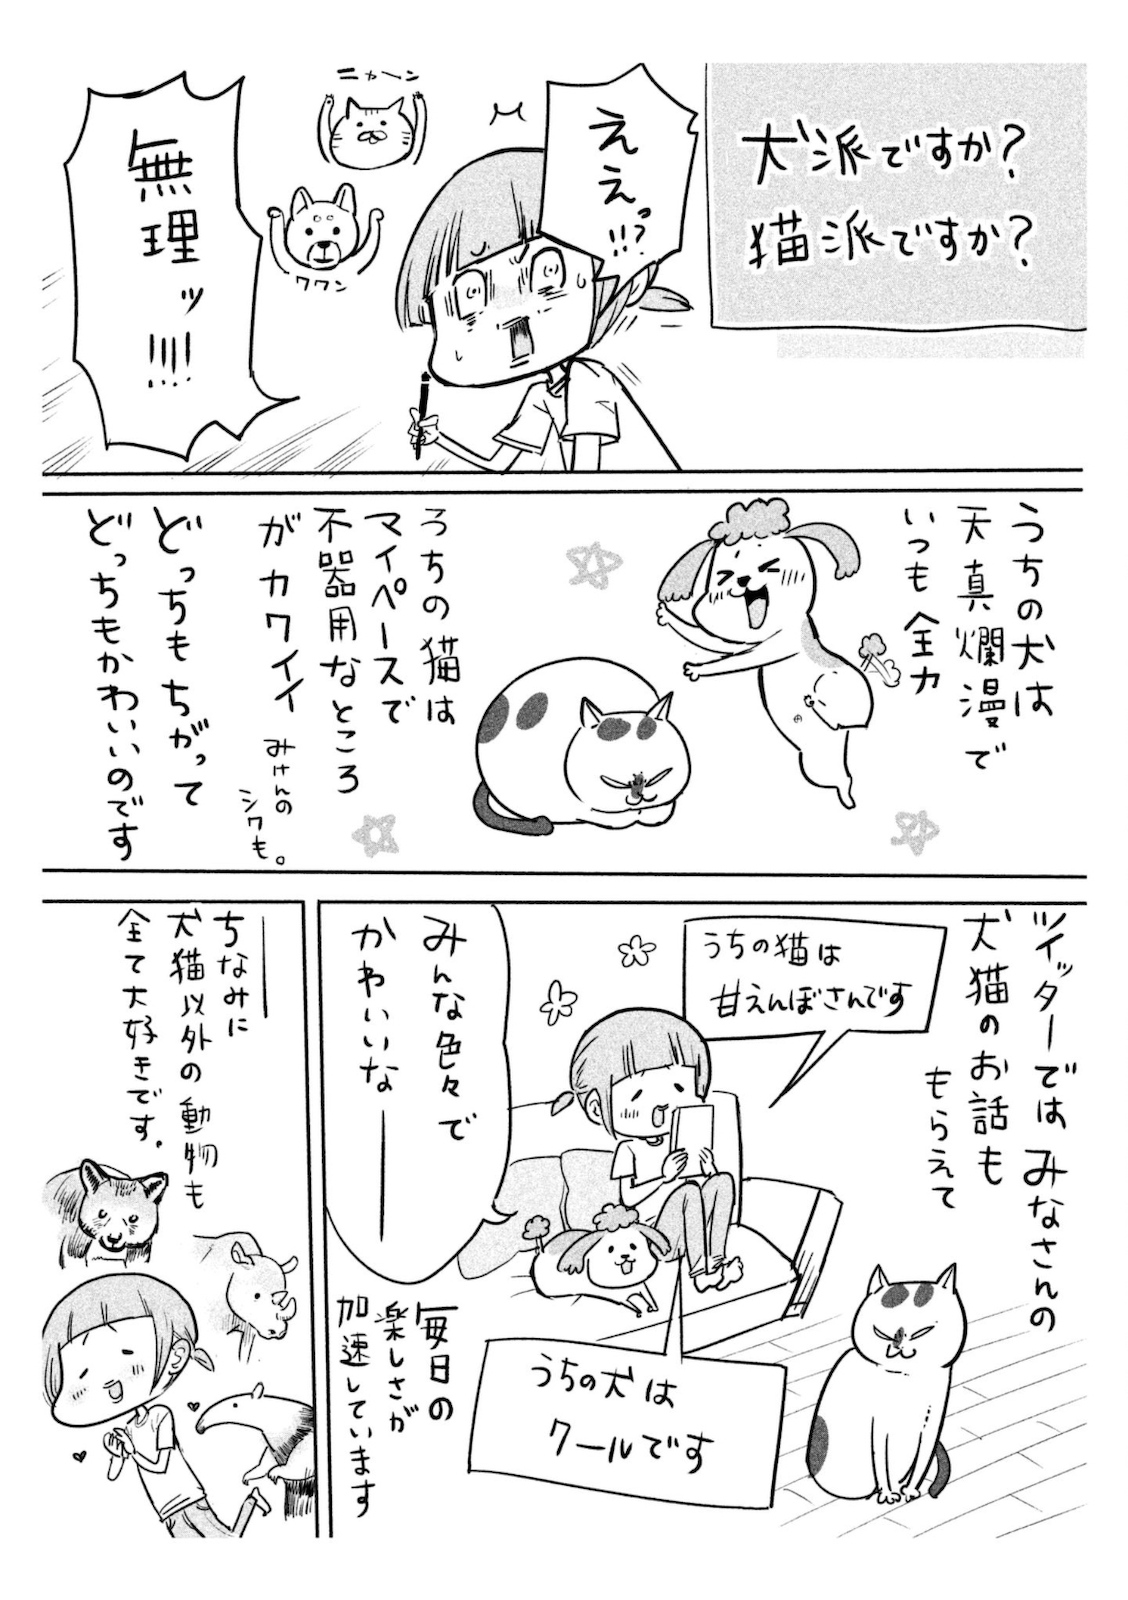 犬派ですか?
猫派ですか?
ええっ!!?
ニャーン
ワワン
無理ッ!!!!
うちの犬は
天真爛漫で
いつも全力
うちの猫は
マイペースで
不器用なところ
がカワイイ
みけんの
シワも。
どっちもちがって
どっちもかわいいのです
ツイッターではみなさんの
犬猫のお話も
もらえて
うちの猫は
甘えんぼさんです
うちの犬は
クールです
みんな色々で
かわいいなー
毎日の
楽しさが
加速しています
ちなみに
犬猫以外の動物も
全て大好きです。